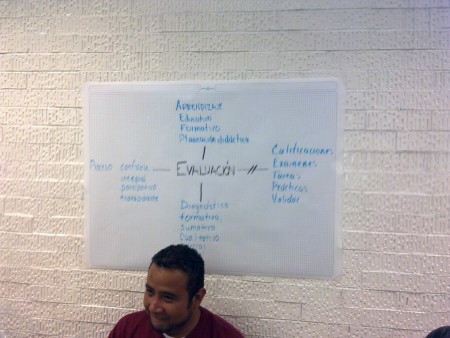 APRENDIZAJE
Educativo
Formativo
Planeación didáctica
Proceso confiable
integral
participativo
transparente
EVALUACIÓN
Calificaciones
Exámenes
Tareas
Prácticas
Validar
Diagnóstica
formativa,
sumativa
Cualitativo